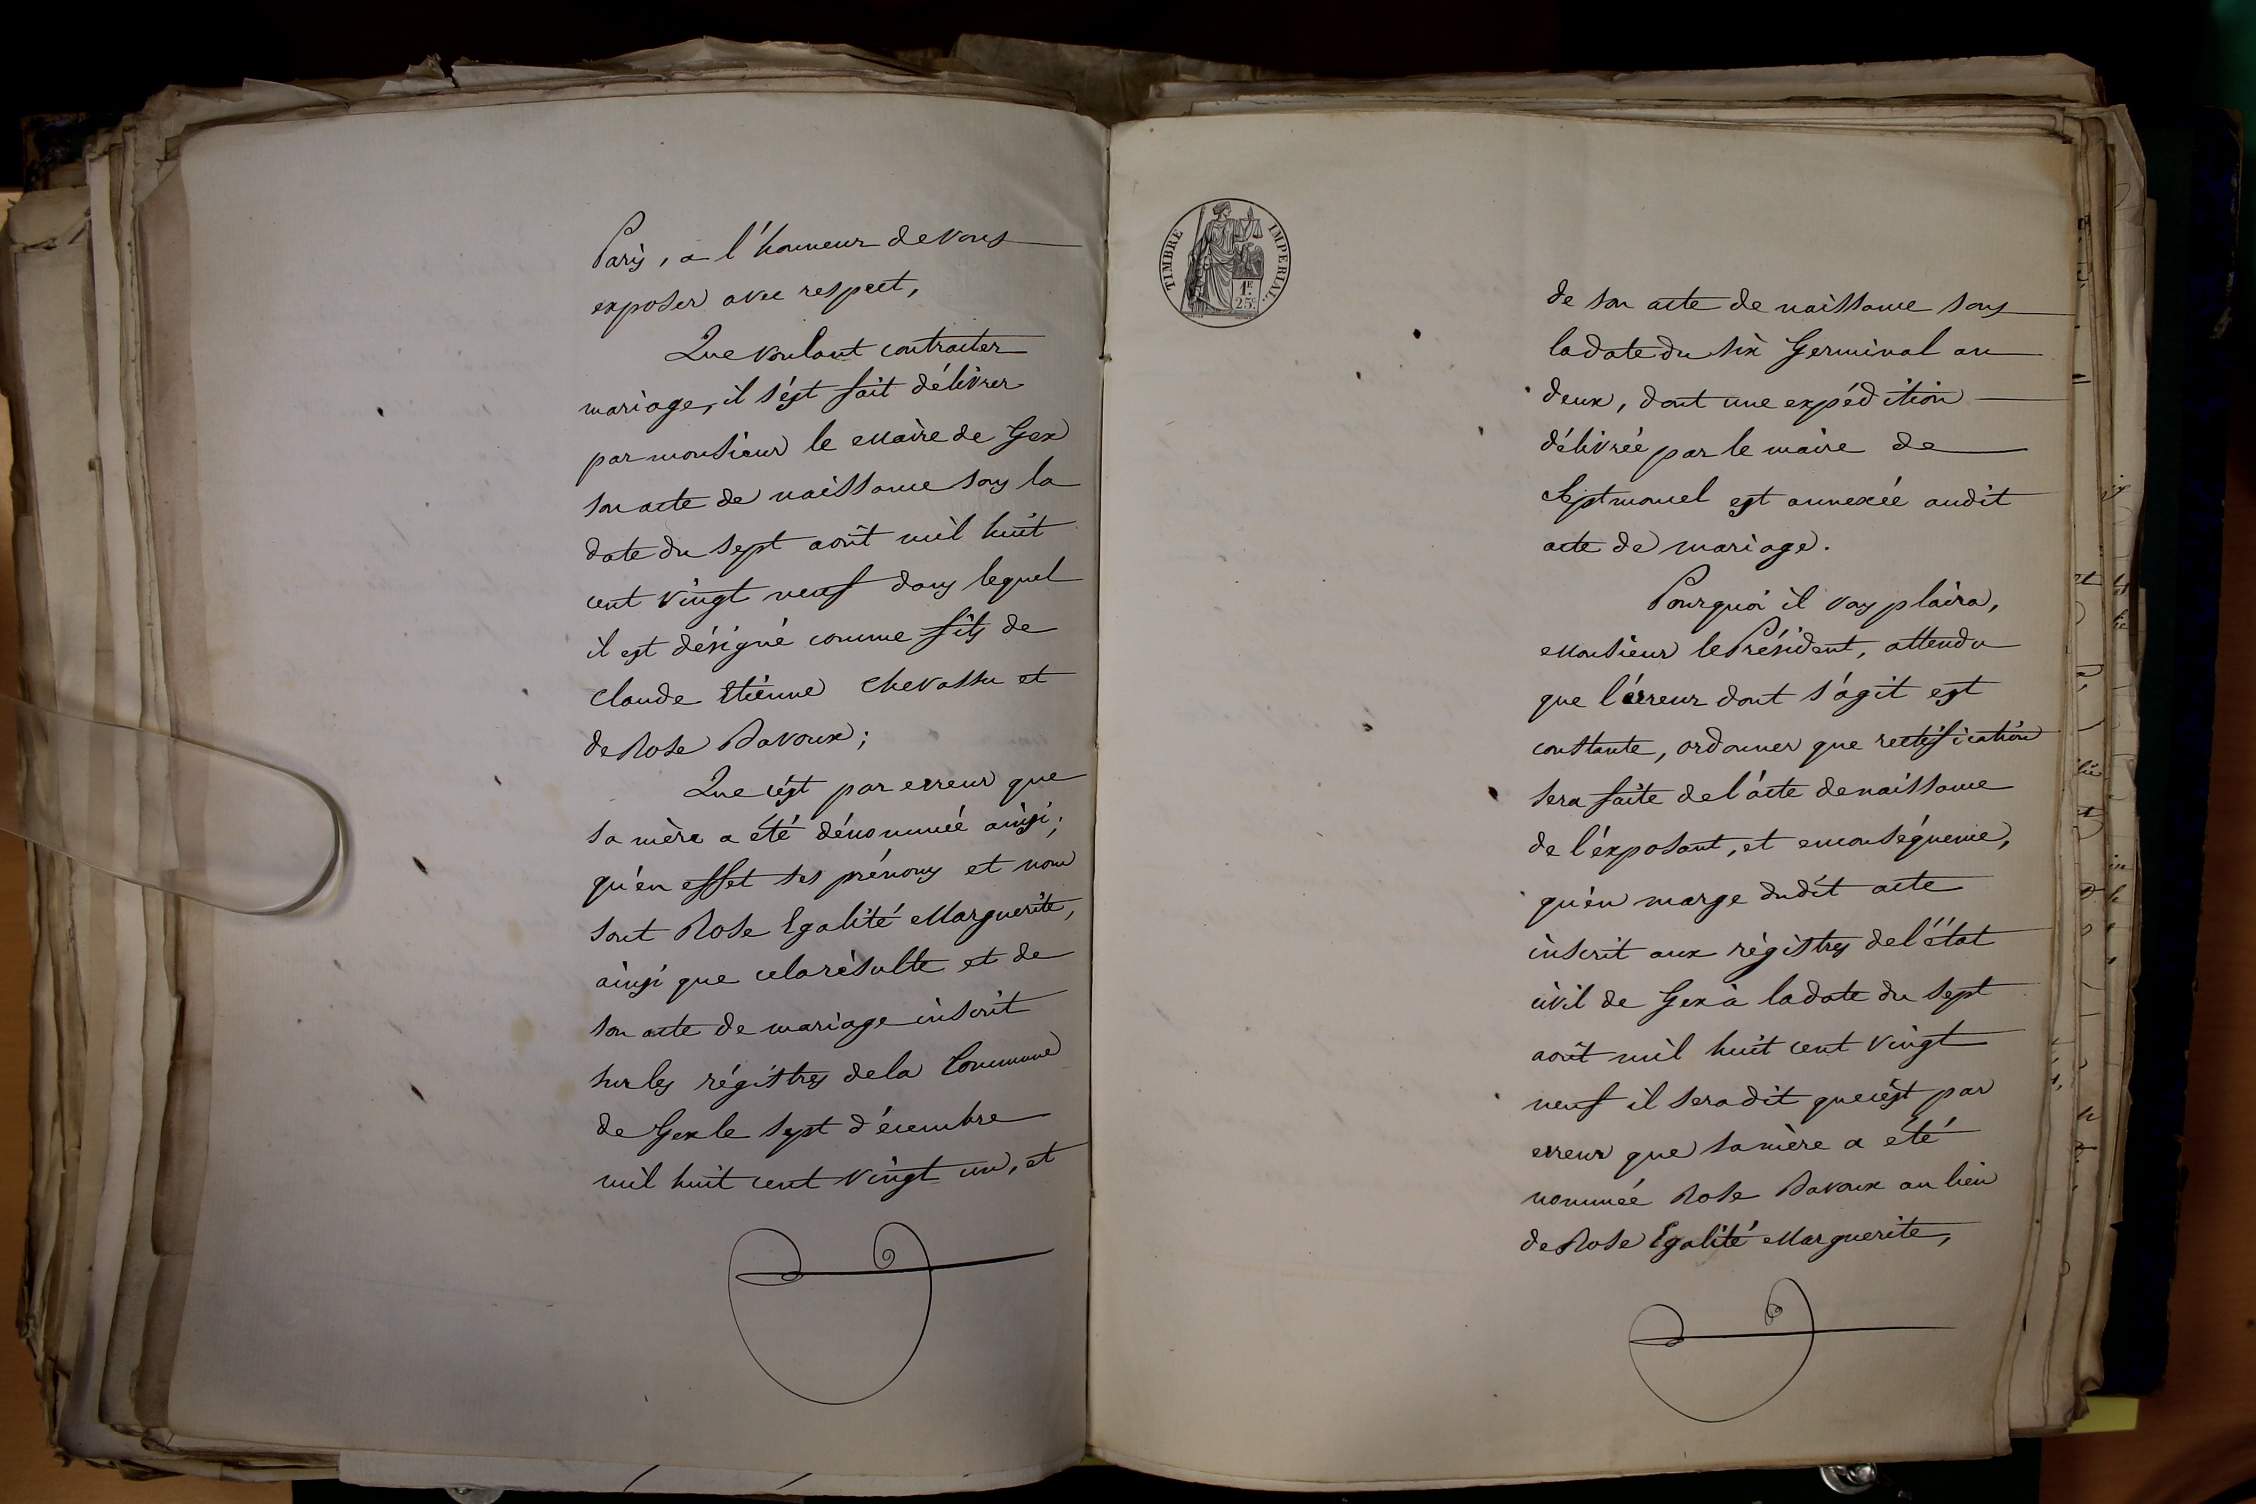 Paris, a l'honneur de vous
exposer avec respect,
Que voulant contracter
mariage, il s'est fait délivrer
par monsieur le Maire de Gex
son acte de naissance sous la
date du sept août mil huit
cent vingt neuf dans lequel
il est désigné comme fils de
Claude Etienne Chevassu et
de Rose Davoux;
Que c'est par erreur que
sa mère a été dénommée ainsi;
qu'en effet ses prénoms et nom
sont Rose Egalité Marguerite,
ainsi que cela résulte et de
son acte de mariage inscrit
sur les régistres de la Commune
de Gex le sept décembre
mil huit cent vingt un, et
TIMBRE IMPERIAL.
1F
25c
de son acte de naissance sous
la date du six Germinal an
deux, dont une expédition
délivrée par le maire de
Septmoncel est annexée audit
acte de mariage.
Pourquoi il vous plaira,
Monsieur le Président, attendu
que l'érreur dont s'agit est
constante, ordonner que rectification
sera faite de l'acte de naissance
de l'exposant, et en conséquence,
qu'en marge dudit acte
inscrit aux régistres de l'état
civil de Gex à la date du sept
août mil huit cent vingt
neuf il sera dit que c'est par
erreur que sa mère a été
nommée Rose Davoux au lieu
de Rose Egalité Marguerite,